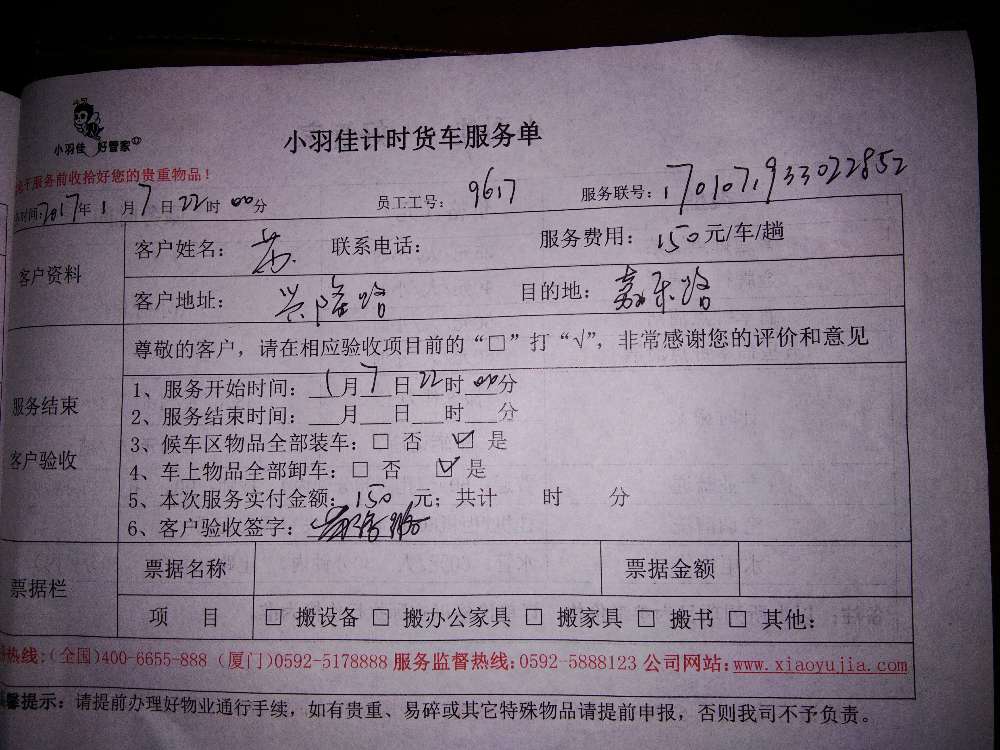 小羽佳 好管家
小羽佳计时货车服务单
干服务前收拾好您的贵重物品！
时间：2017年1月7日22时00分 员工工号： 9617 服务联号：170107193302 2852
客户资料
客户姓名：苏 联系电话： 服务费用：150元/车/趟
客户地址：兴隆路 目的地：嘉禾路
尊敬的客户，请在相应验收项目前的“□”打“√”，非常感谢您的评价和意见
服务结束
客户验收
1、服务开始时间：1月7日22时00分
2、服务结束时间：___月___日___时___分
3、候车区物品全部装车：□ 否 ☑ 是
4、车上物品全部卸车：□ 否 ☑ 是
5、本次服务实付金额：150 元；共计 时 分
6、客户验收签字：
票据栏
票据名称 票据金额
项 目 □ 搬设备 □ 搬办公家具 □ 搬家具 □ 搬书 □ 其他：
热线：（全国）400-6655-888（厦门）0592-5178888 服务监督热线：0592-5888123 公司网站：www.xiaoyujia.com
馨提示：请提前办理好物业通行手续，如有贵重、易碎或其它特殊物品请提前申报，否则我司不予负责。